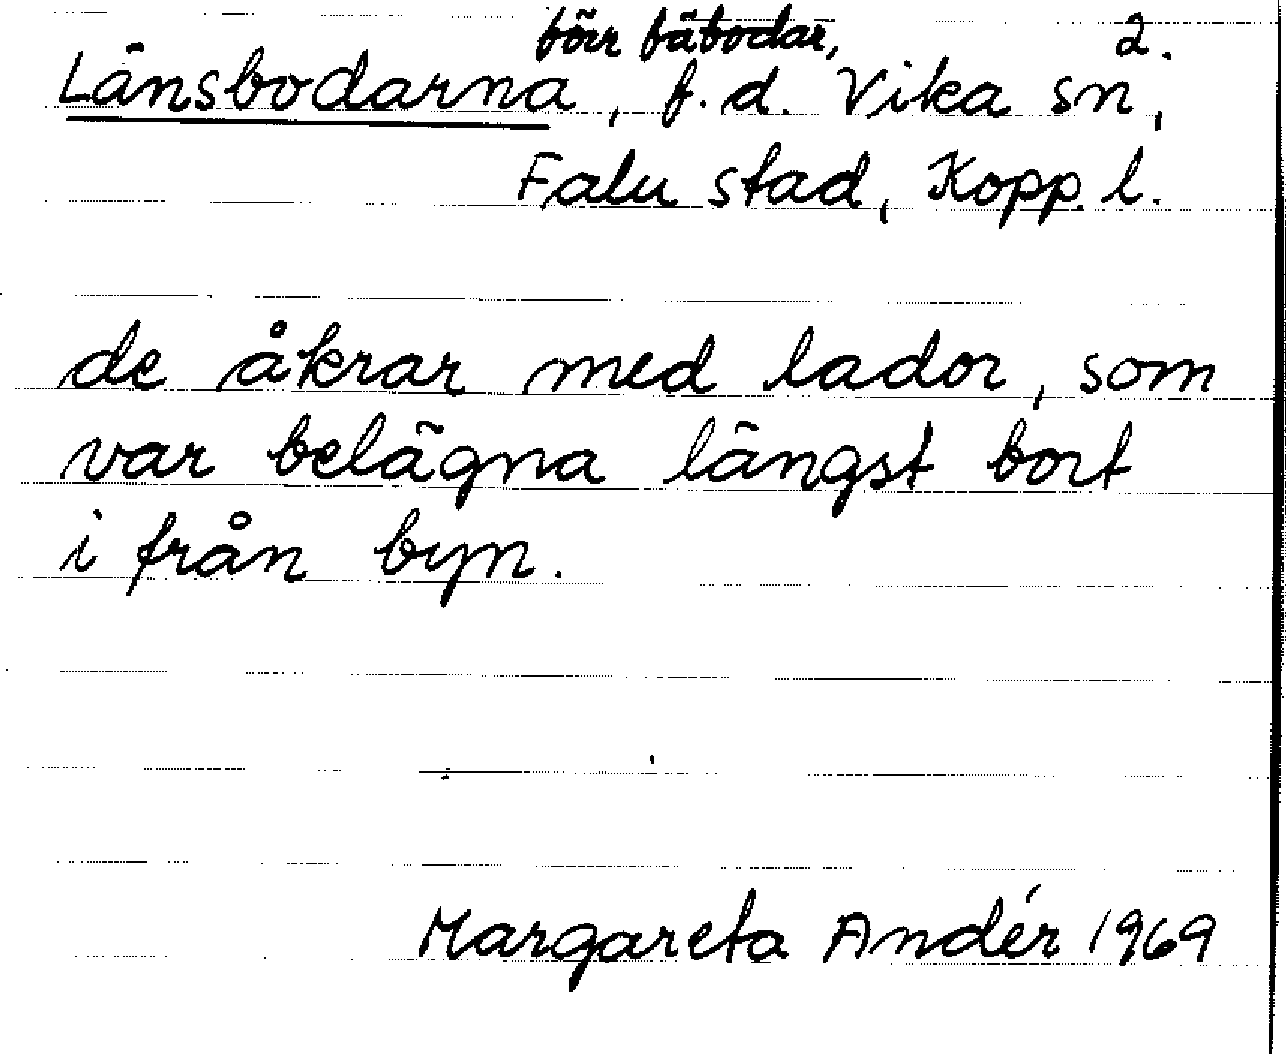 förr fäbodar, 2.
Länsbodarna, f.d. Vika sn,
Falu stad, Kopp. l.
de åkrar med lador, som
var belägna längst bort
i från byn.
Margareta Andér 1969